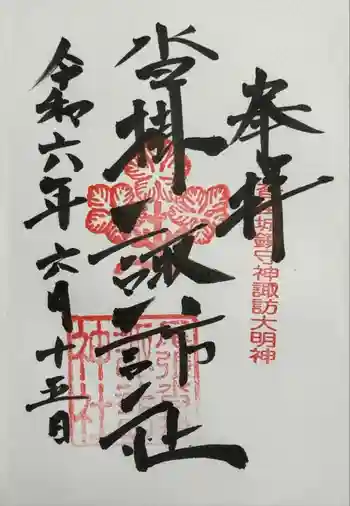 奉拝
沓掛諏訪社
令和六年六月十五日
神諏訪大明神